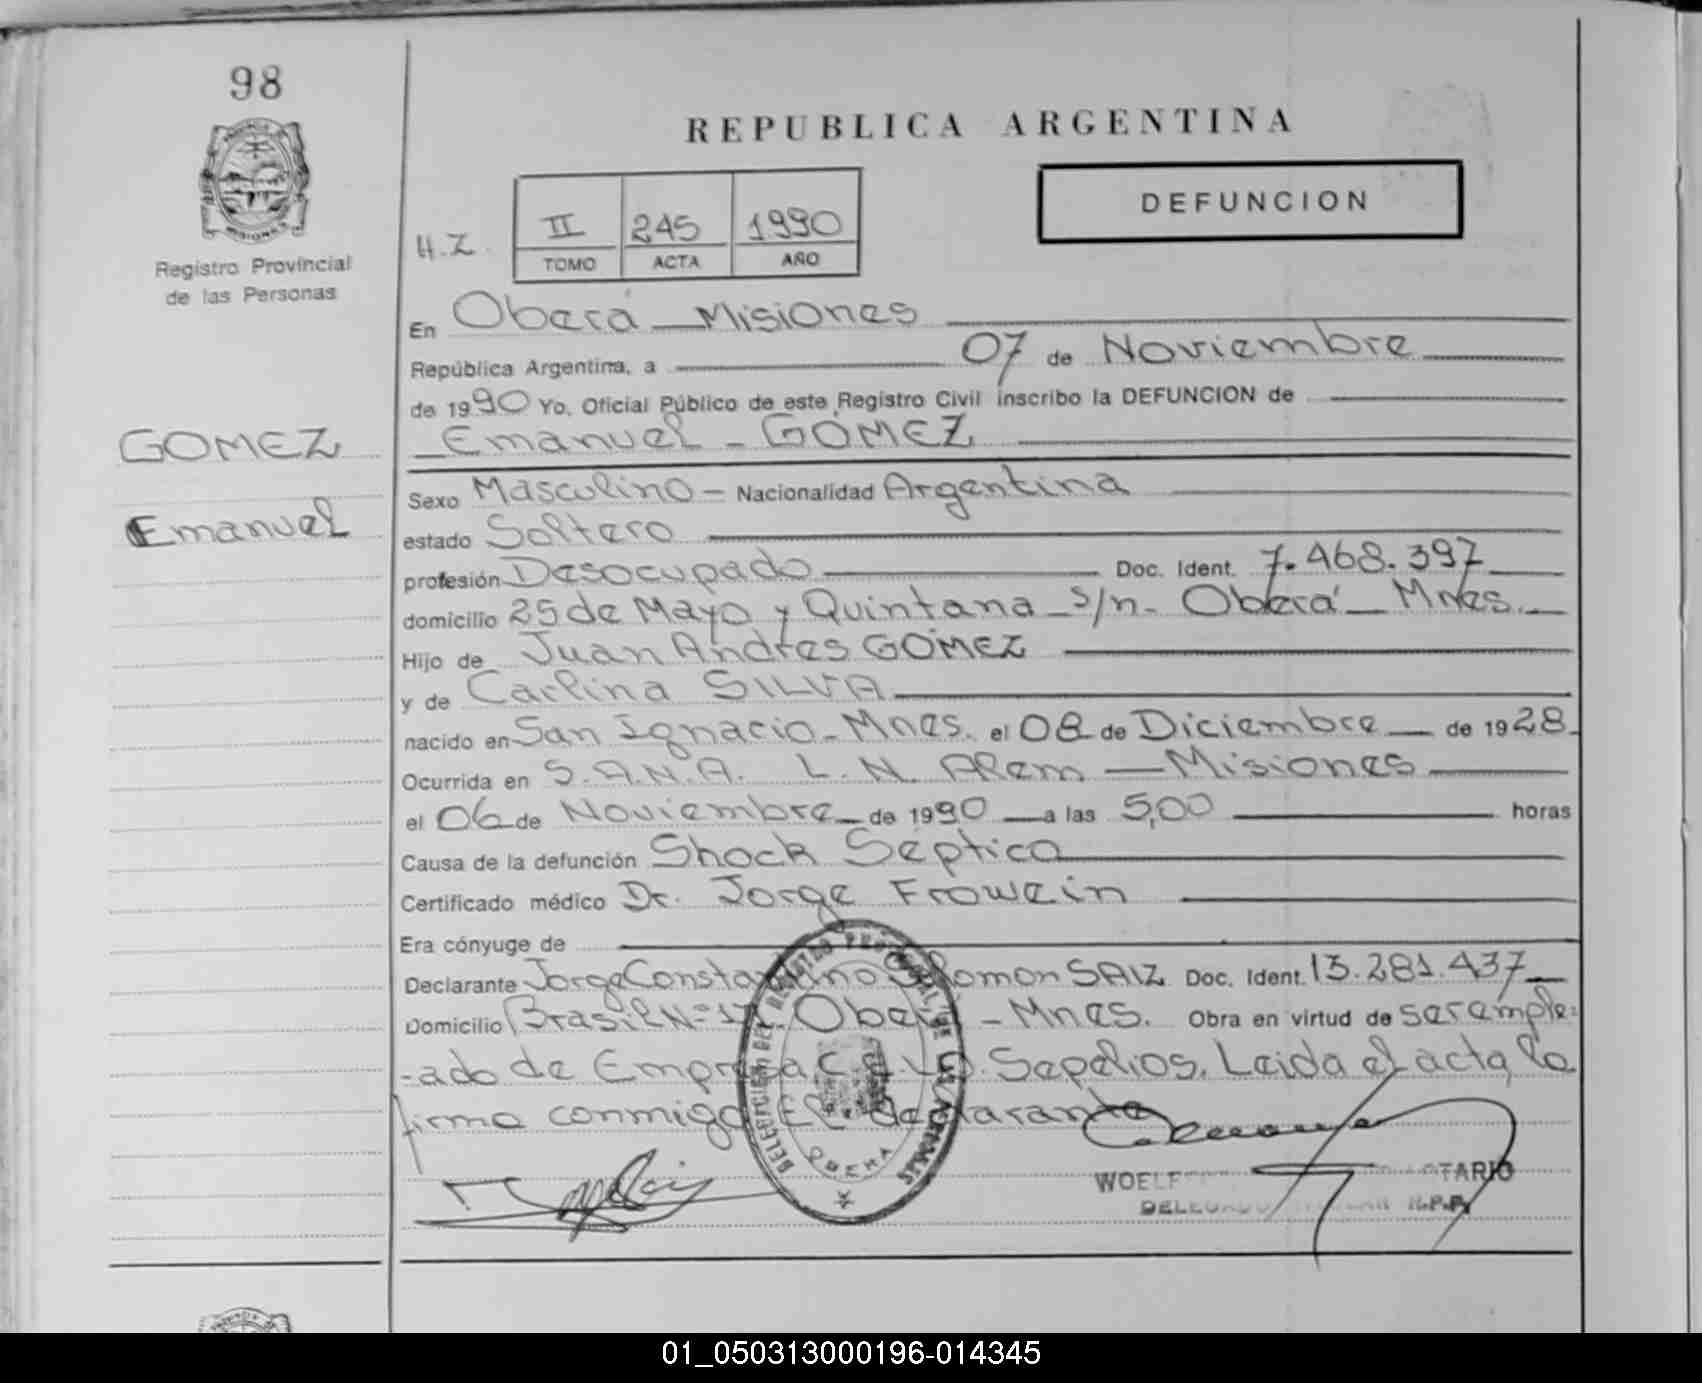 98
REPUBLICA ARGENTINA
DEFUNCION
H.Z. II 245 1990
TOMO ACTA AÑO
Registro Provincial
de las Personas
En Oberá - Misiones
República Argentina, a 07 de Noviembre
de 1990 Yo, Oficial Público de este Registro Civil inscribo la DEFUNCION de
GOMEZ
Emanuel
Emanuel - GOMEZ
Sexo Masculino - Nacionalidad Argentina
estado Soltero
profesión Desocupado Doc. Ident. 7.468.397
domicilio 25 de Mayo y Quintana s/n - Oberá - Mnes.
Hijo de Juan Andres GOMEZ
y de Carlina SILVA
nacido en San Ignacio - Mnes. el 08 de Diciembre de 1928
Ocurrida en S.A.N.A. L. N. Alem - Misiones
el 06 de Noviembre de 1990 a las 5,00 horas
Causa de la defunción Shock Séptico
Certificado médico Dr. Jorge Frowein
Era cónyuge de
Declarante Jorge Constantino Salomon SAIZ Doc. Ident. 13.281.437
Domicilio Brasil Nº Oberá - Mnes. Obra en virtud de ser emple-
-ado de Empresa Sepelios. Leida el acta, la
firma conmigo El declarante
DELEGACION DEL REGISTRO PROVINCIAL DE LAS PERSONAS
OBERA
01_050313000196-014345